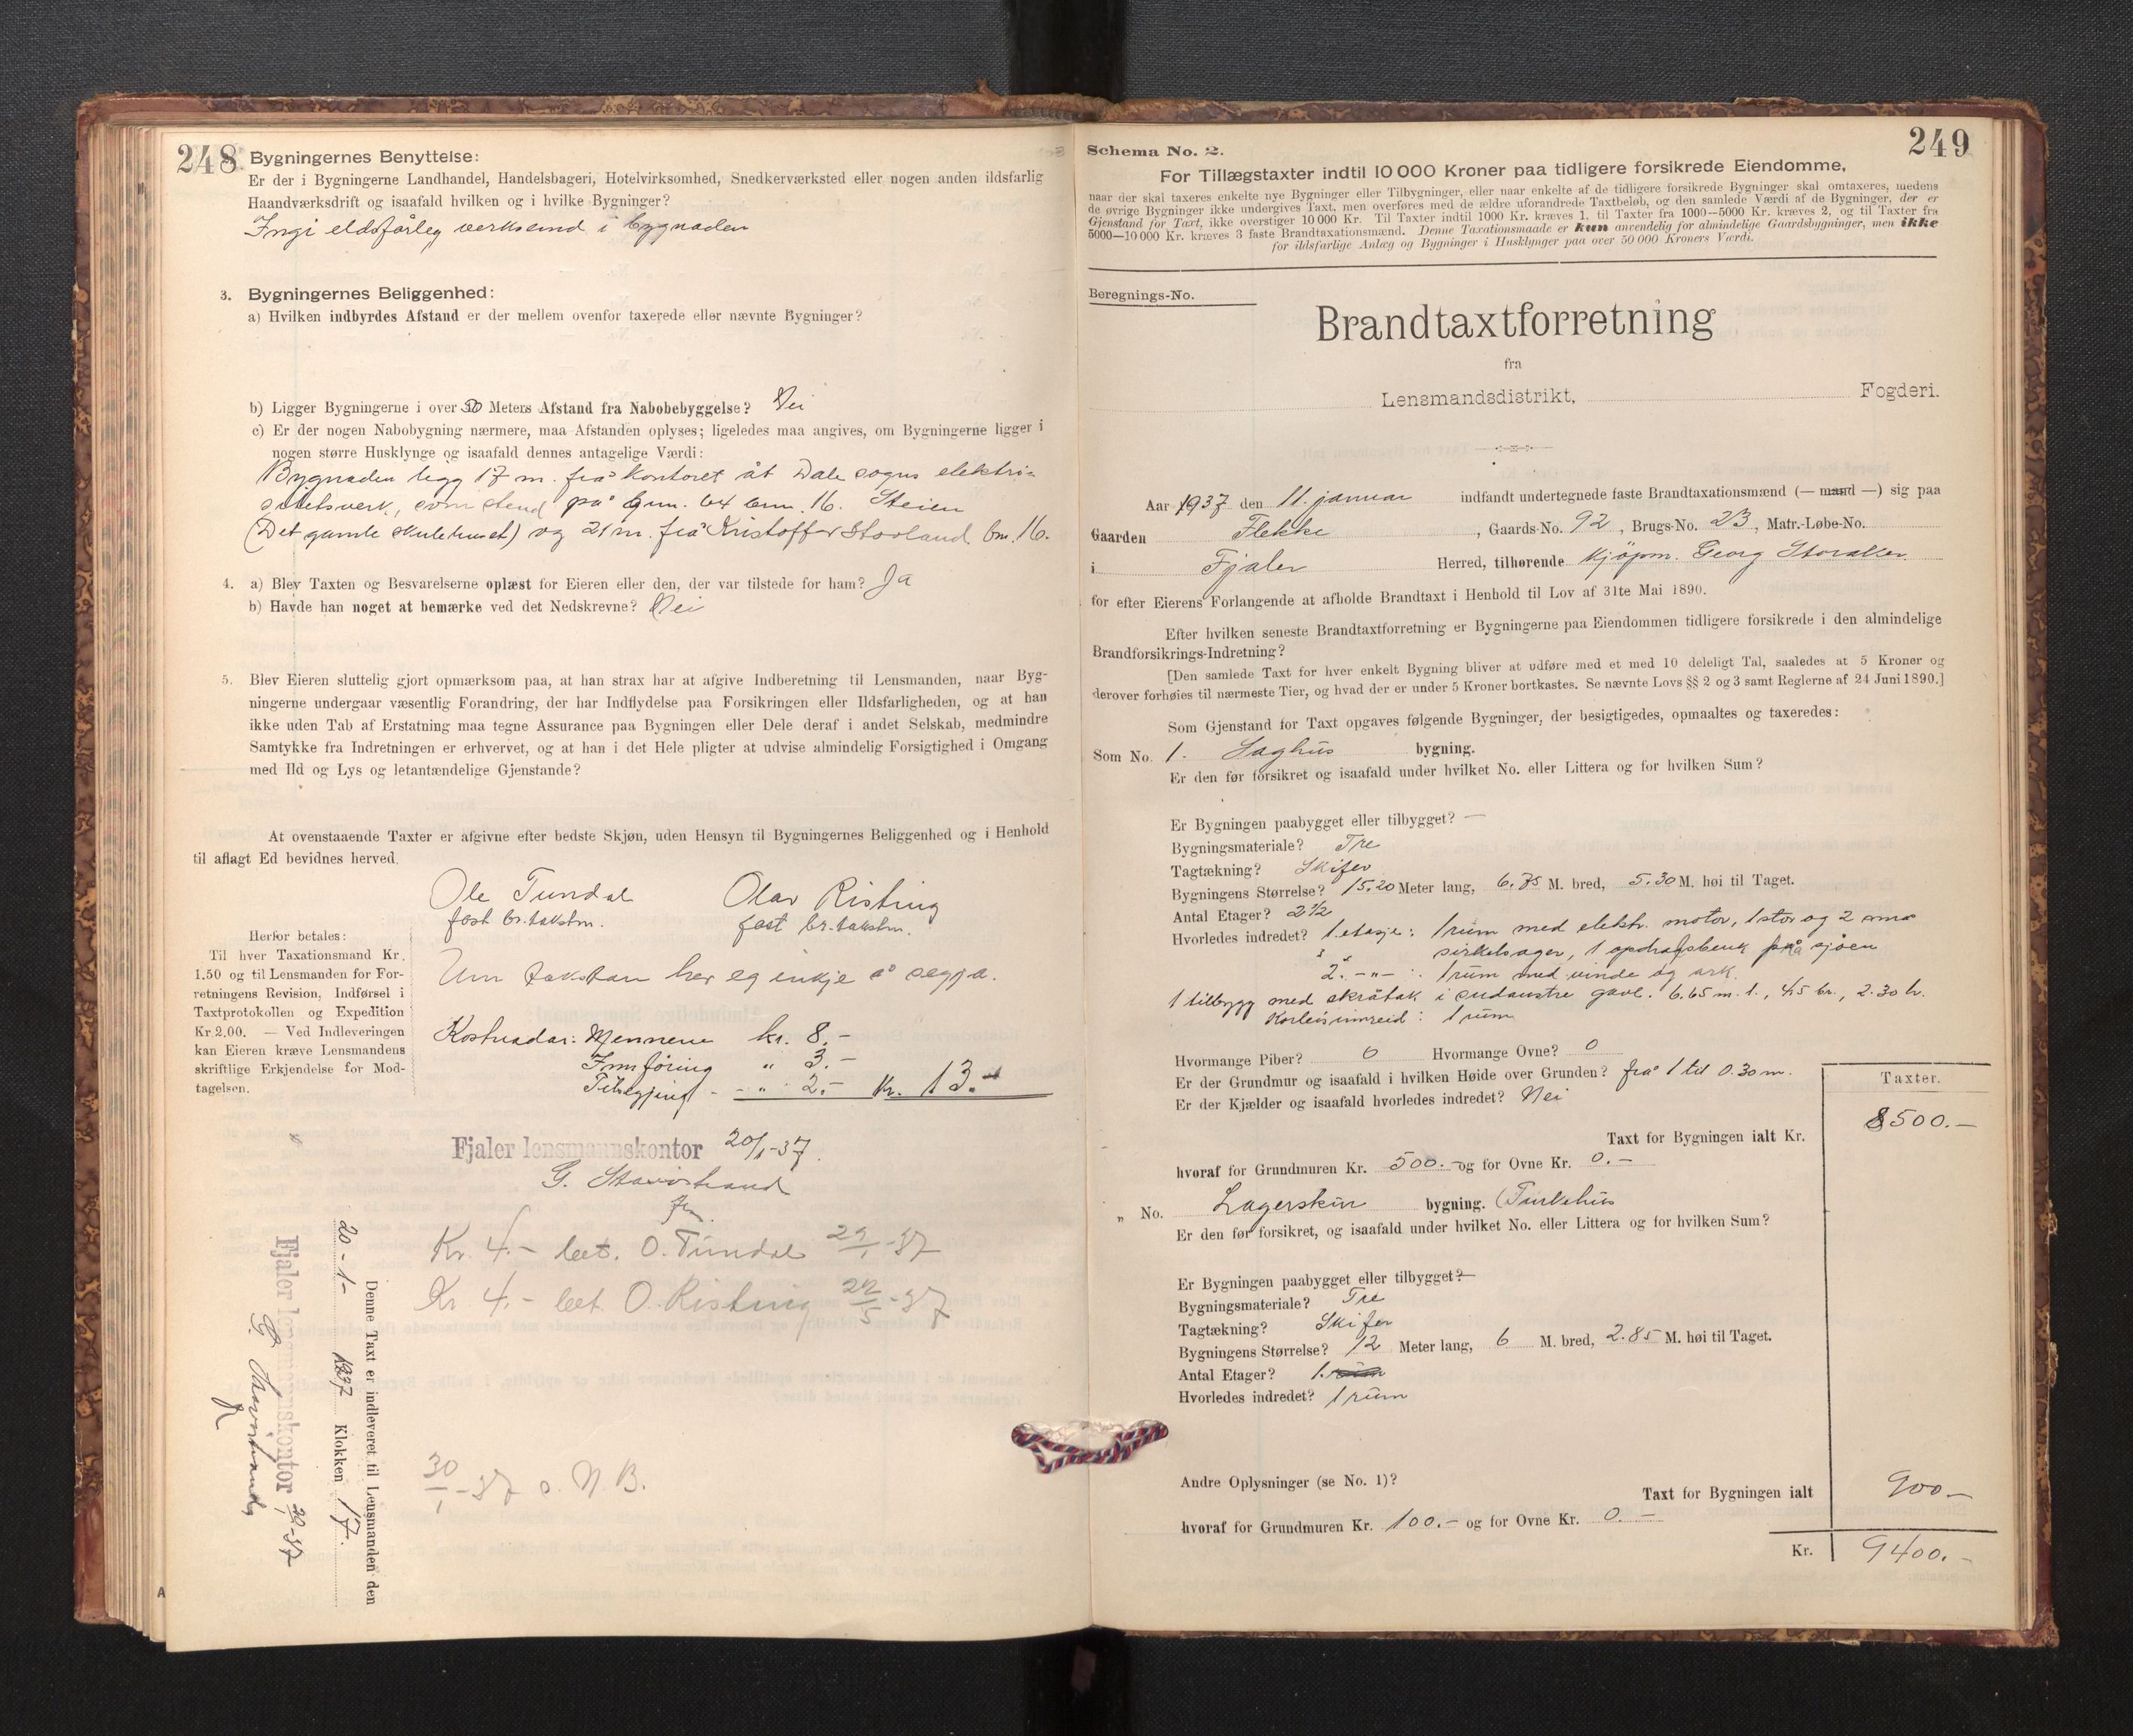 248
Bygningernes Benyttelse:
Er der i Bygningerne Landhandel, Handelsbageri, Hotelvirksomhed, Snedkerværksted eller nogen anden ildsfarlig
Haandværksdrift og isaafald hvilken og i hvilke Bygninger?
Ingi eldsfårleg verksemd i bygnaden
3. Bygningernes Beliggenhed:
a) Hvilken indbyrdes Afstand er der mellem ovenfor taxerede eller nævnte Bygninger?
b) Ligger Bygningerne i over 50 Meters Afstand fra Nabobebyggelse? Nei
c) Er der nogen Nabobygning nærmere, maa Afstanden oplyses; ligeledes maa angives, om Bygningerne ligger i
nogen større Husklynge og isaafald dennes antagelige Værdi:
Bygnaden ligg 17 m. frå kontoret åt Dale sogns elektri-
sitetsverk, som stend på gnr. 64 bnr. 16. Steien
(Det gamle skulehuset) og 21 m. frå Kristoffer Storland bn. 16.
4. a) Blev Taxten og Besvarelserne oplæst for Eieren eller den, der var tilstede for ham? Ja
b) Havde han noget at bemærke ved det Nedskrevne? Nei
5. Blev Eieren sluttelig gjort opmærksom paa, at han strax har at afgive Indberetning til Lensmanden, naar Byg-
ningerne undergaar væsentlig Forandring, der har Indflydelse paa Forsikringen eller Ildsfarligheden, og at han
ikke uden Tab af Erstatning maa tegne Assurance paa Bygningen eller Dele deraf i andet Selskab, medmindre
Samtykke fra Indretningen er erhvervet, og at han i det Hele pligter at udvise almindelig Forsigtighed i Omgang
med Ild og Lys og letantændelige Gjenstande?
At ovenstaaende Taxter er afgivne efter bedste Skjøn, uden Hensyn til Bygningernes Beliggenhed og i Henhold
til aflagt Ed bevidnes herved.
Ole Tundal Olav Risting
fast br.takstm. fast br.takstm.
Herfor betales:
Til hver Taxationsmand Kr.
1.50 og til Lensmanden for For-
retningens Revision, Indførsel i
Taxtprotokollen og Expedition
Kr. 2.00. — Ved Indleveringen
kan Eieren kræve Lensmandens
skriftlige Erkjendelse for Mod-
tagelsen.
Um taksten her eg inkje å segja.
Kostnadar: Mennene kr. 8.-
Innføring " 3.-
" 2.- Kr. 13.-
Fjaler lensmannskontor 20/1-37.
Kr. 4.- bet. O. Tundal 29/1-37
Kr. 4.- bet. O. Risting 22/5-37
30/1-37 s. N. B.
Denne Taxt er indleveret til Lensmanden den
20-1- 1937 Klokken 17.
Fjaler lensmannskontor 20/1-37
249
Schema No. 2.
For Tillægstaxter indtil 10 000 Kroner paa tidligere forsikrede Eiendomme,
naar der skal taxeres enkelte nye Bygninger eller Tilbygninger, eller naar enkelte af de tidligere forsikrede Bygninger skal omtaxeres, medens
de øvrige Bygninger ikke undergives Taxt, men overføres med de ældre uforandrede Taxtbeløb, og den samlede Værdi af de Bygninger, der er
Gjenstand for Taxt, ikke overstiger 10 000 Kr. Til Taxter indtil 1000 Kr. kræves 1, til Taxter fra 1000—5000 Kr. kræves 2, og til Taxter fra
5000—10 000 Kr. kræves 3 faste Brandtaxationsmænd. Denne Taxationsmaade er kun anvendelig for almindelige Gaardsbygninger, men ikke
for ildsfarlige Anlæg og Bygninger i Husklynger paa over 50 000 Kroners Værdi.
Beregnings-No.
Brandtaxtforretning
fra
Lensmandsdistrikt, Fogderi.
Aar 1937 den 11. januar indfandt undertegnede faste Brandtaxationsmænd (— mand —) sig paa
Gaarden Flekke, Gaards-No. 92, Brugs-No. 23, Matr.-Løbe-No.
i Fjaler Herred, tilhørende kjöpm. Georg
for efter Eierens Forlangende at afholde Brandtaxt i Henhold til Lov af 31te Mai 1890.
Efter hvilken seneste Brandtaxtforretning er Bygningerne paa Eiendommen tidligere forsikrede i den almindelige
Brandforsikrings-Indretning?
[Den samlede Taxt for hver enkelt Bygning bliver at udføre med et med 10 deleligt Tal, saaledes at 5 Kroner og
derover forhøies til nærmeste Tier, og hvad der er under 5 Kroner bortkastes. Se nævnte Lovs §§ 2 og 3 samt Reglerne af 24 Juni 1890.]
Som Gjenstand for Taxt opgaves følgende Bygninger, der besigtigedes, opmaaltes og taxeredes:
Som No. 1. Saghus bygning.
Er den før forsikret og isaafald under hvilket No. eller Littera og for hvilken Sum?
Er Bygningen paabygget eller tilbygget? —
Bygningsmateriale? Tre
Tagtækning? Skifer
Bygningens Størrelse? 15.20 Meter lang, 6.75 M. bred, 5.30 M. høi til Taget.
Antal Etager? 2½
Hvorledes indredet? 1. etasje: 1 rum med elektr. motor, 1 stor og 2 små
sirkelsager, 1 på sjöen
2. -"- : 1 rum med vinde og ark.
1 tilbygg med skråtak i sudaustre gavl. 6.65 m. l., 4.5 br., 2.30 h.
Korleis innreid: 1 rum
Hvormange Piber? 0 Hvormange Ovne? 0
Er der Grundmur og isaafald i hvilken Høide over Grunden? frå 1 til 0.30 m.
Er der Kjælder og isaafald hvorledes indredet? Nei
Taxter.
Taxt for Bygningen ialt Kr. 8500.—
hvoraf for Grundmuren Kr. 500.- og for Ovne Kr. 0.-
" No. Lagerskur bygning. (Turkehus
Er den før forsikret, og isaafald under hvilket No. eller Littera og for hvilken Sum?
Er Bygningen paabygget eller tilbygget? —
Bygningsmateriale? Tre
Tagtækning? Skifer
Bygningens Størrelse? 12 Meter lang, 6 M. bred, 2.85 M. høi til Taget.
Antal Etager? 1.
Hvorledes indredet? 1 rum
Andre Oplysninger (se No. 1)?
Taxt for Bygningen ialt 900.—
hvoraf for Grundmuren Kr. 100.- og for Ovne Kr. 0.-
Kr. 9400.-